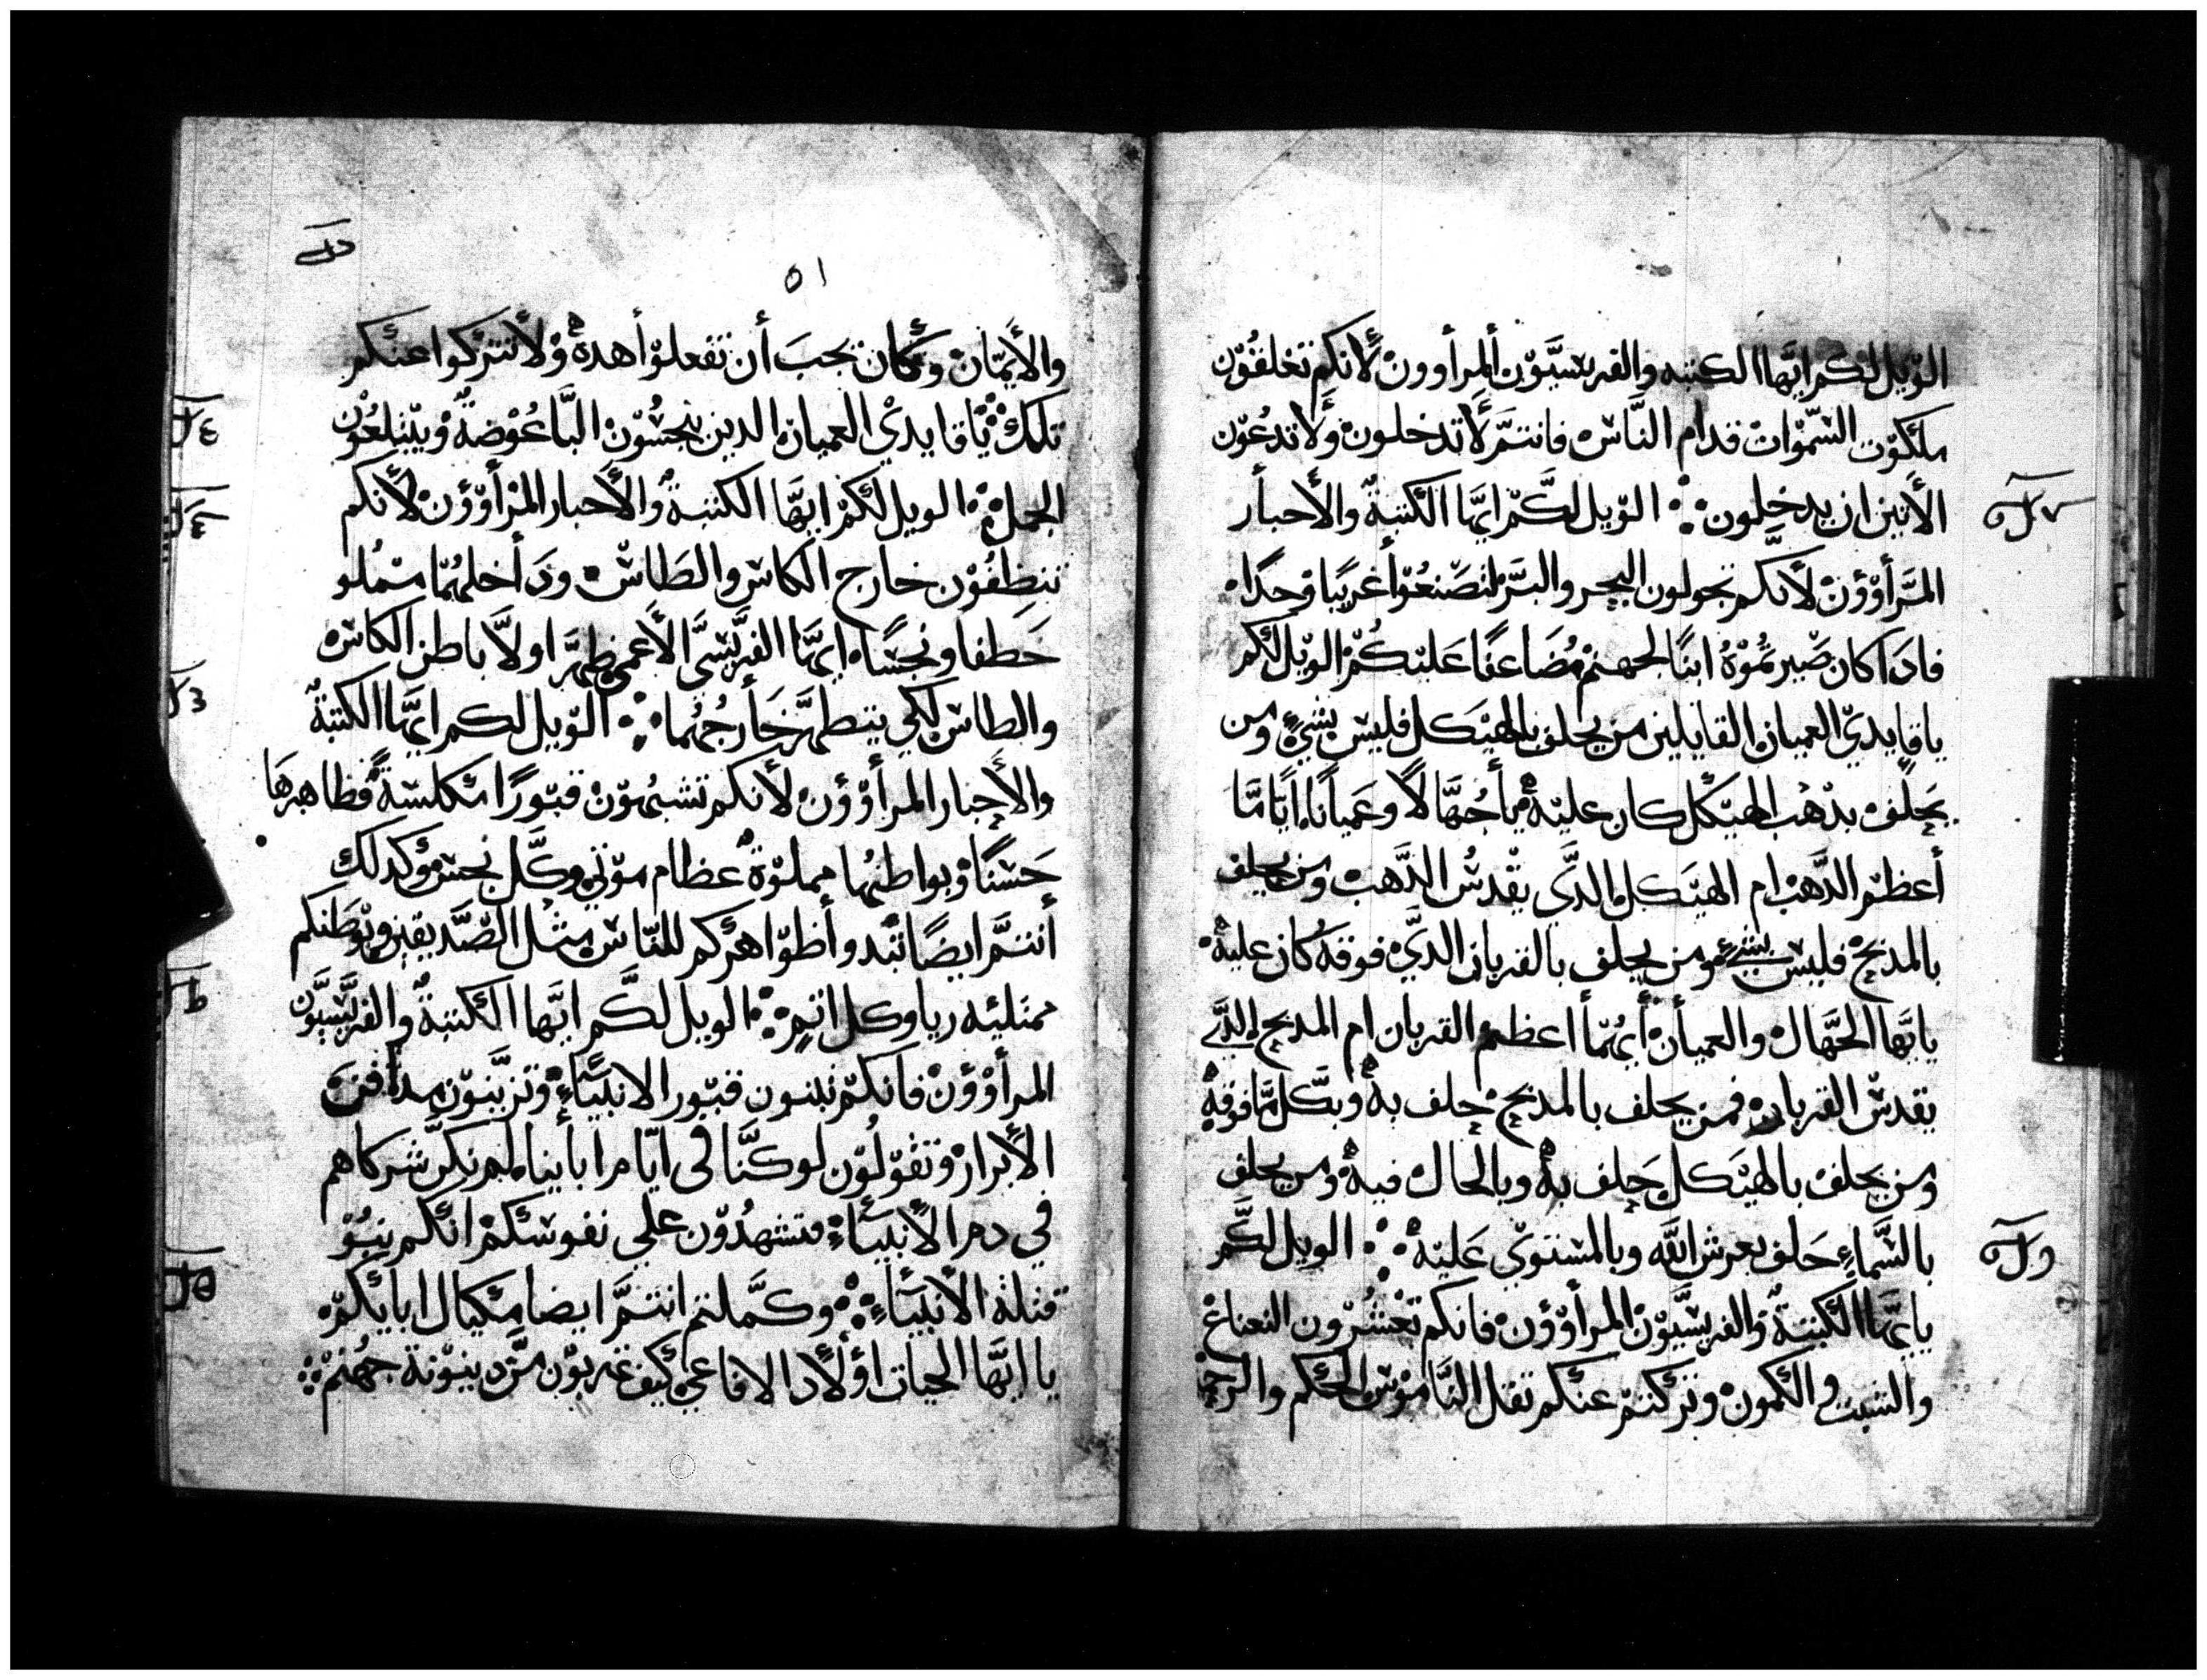 الوَيل لكم ايَّها الكتبه والفريسيّون ألمرأوون لأنكم تغلقُون
ملكوت السّموات قدام النَّاس فانتمّ لَا تدخلون وَلَا تدعُون
الأتين ان يدخلون ܀ الوَيل لكَّم ايَّها الكتبةُ والأحبأر
المرَّأوؤن لأنكم تجولون البحر والبرَّ لتصَنعُوا غريبًا وَحدًا
فادَا كان صَيرتمُوهُ ابنًا لجهنم مُضَاعفًا عَليكُم الويل لكم
يا قايدي العميان القايلين من يحلف بالهيكل فليس بشيءٍ ومن
يحَلف بدهب الهيكل كان عليه يأجُهَّالًا وعَميانًا ايَّامَّا
أعظم الدَّهب ام الهيكل الدَّى يقدسُ الدَّهب ومن يحلف
بالمدبح فليس بشيءٍ ومن يحلف بالقربان الدَّي فوقهُ كان عليهْ
يايَّها الجَّهال والعميأن أيُمّا اعظم القربان ام المدبح الدَّي
يقدسّ القربان فمن يحلف بالمدبح حلف به وبكَّل مَّا فوقهْ
ومن يحلف بالهيَكل حَلف به وبالحال فيه ومن يحلف
بالسَّماءِ حَلف بعرش اللَّه وبالمستوي عَليه ܀ الويل لكَّم
يايَّها الكتبةُ والفريسَّيون المرأوؤن فانكم تعْشُرون النعناع
والشبت والكمون وتركتم عنكم تقل النَّاموس الحكم والرحمه
دل
٥١
والأيمَّان وكمأن يجبَ أن تفعلوا أهده وْلَا تتركوا عنكم
تلك ܀ يَا قايديْ العميان الدين ينجسُون البَّاعُوضةُ ويبْتلعُون
الجمل ܀ الويل لكم ايَّها الكتبةُ والأحبار المرْأوؤن لأنكم
تنظفُون خارج الكاس والطَاس ودَ أخلهُمَا ممْلو
خَطفا ونجسًا ايَّها الفرَّيسَّى الأعمي طهرَّ اولًا باطن الكاس
والطاس لكي يتطهَّر خَأرجُهُما ܀ الوّيل لكم ايَّها الكتبةُ
والأحبار المرأوؤن لأنكم تشبُهون قبّورًا مكلسّةً فظاهرهَا
حَسنًا وبواطنُها مملوةُ عظام موتي وكَّل نجس وكدلك
أنتمَّ ايضًا تبَدو أظواهرَكم للنّاس مثل الصَّديقين وبوَطنكم
ممتليَه ريا وكل اتمٍ ܀ الويل لكَّم ايَّها الكتبةُ والفريّسيَّون
المرأوؤن فانكّم تبنون قبّور الانبيَّاءِ وتزيَّنون مدأفن
الأبرار وتقوَلُون لوكنَّا فى ايّام ابأينا لم نكَّن شركاهم
في دم الأنبيَآءِ فتشهدُون علي نفوسكمْ انكم بنُوْ
قتلة الأنبيَآءِ ܀ وكمَّلتم انتمَّ ايضا مكيال ابايكم
يا ايَّها الحيات اؤلأد الافاعي كيف تهربوّن منَّ دينونة جهُنم ܀